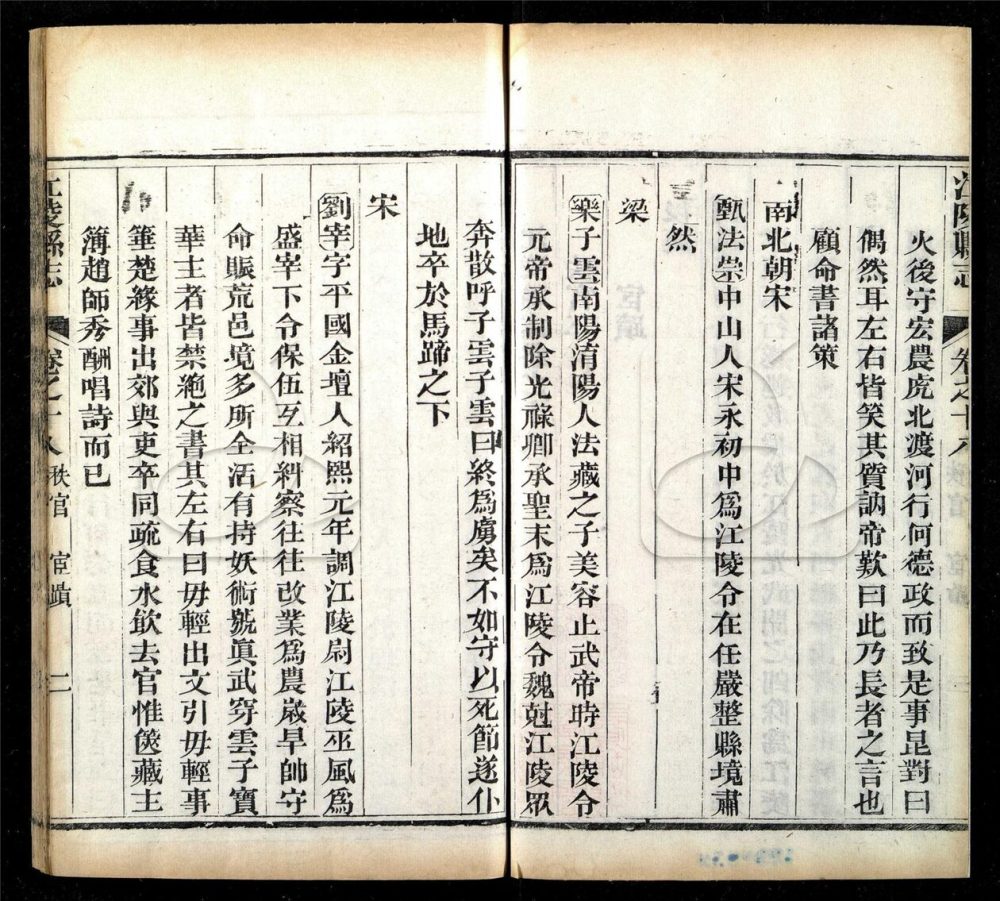 江陵縣志 卷之十八 秩官 宦蹟
火後守宏農虎北渡河行何德政而致是事昆對曰
偶然耳左右皆笑其質訥帝歎曰此乃長者之言也
顧命書諸策
南北朝宋
甄法崇中山人宋永初中爲江陵令在任嚴整縣境肅
然
梁
樂子雲南陽淯陽人法藏之子美容止武帝時江陵令
元帝承制除光祿卿承聖末爲江陵令魏尅江陵眾
奔散呼子雲子雲曰終爲虜矣不如守以死節遂仆
地卒於馬蹄之下
宋
劉宰字平國金壇人紹熙元年調江陵尉江陵巫風爲
盛宰下令保伍互相糾察往往改業爲農歲旱帥守
命賑荒邑境多所全活有持妖術號真武穿雲子寶
華主者皆禁絶之書其左右曰毋輕出文引毋輕事
箠楚緣事出郊與吏卒同疏食水飲去官惟篋藏主
簿趙師秀酬唱詩而已
江陵縣志 卷之十八 秩官 宦蹟 二